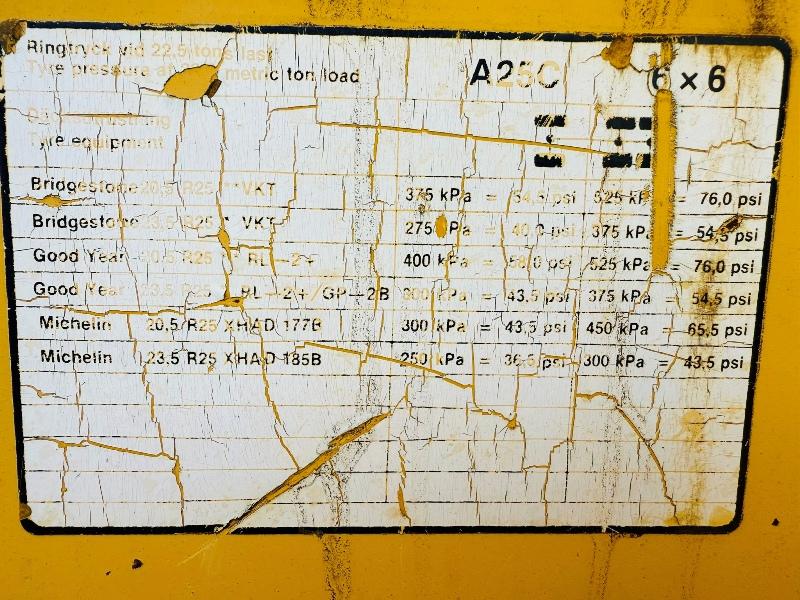 Ringtryck vid 22.5 tons last
Tyre pressure at metric ton load
A25C 6 × 6
Tyre equipment
Bridgestone 20,5 R25 **VKT 375 kPa = 54,5 psi 525 kPa = 76,0 psi
Bridgestone 23,5 R25 * VKT 275 kPa = 40,0 psi 375 kPa = 54,5 psi
Good Year 20,5 R25 ** RL-2+ 400 kPa = 58,0 psi 525 kPa = 76,0 psi
Good Year 23,5 R25 * RL-2+/GP-2B 300 kPa = 43,5 psi 375 kPa = 54,5 psi
Michelin 20,5 R25 XHAD 177B 300 kPa = 43,5 psi 450 kPa = 65,5 psi
Michelin 23,5 R25 XHAD 185B 250 kPa = 36,5 psi 300 kPa = 43,5 psi